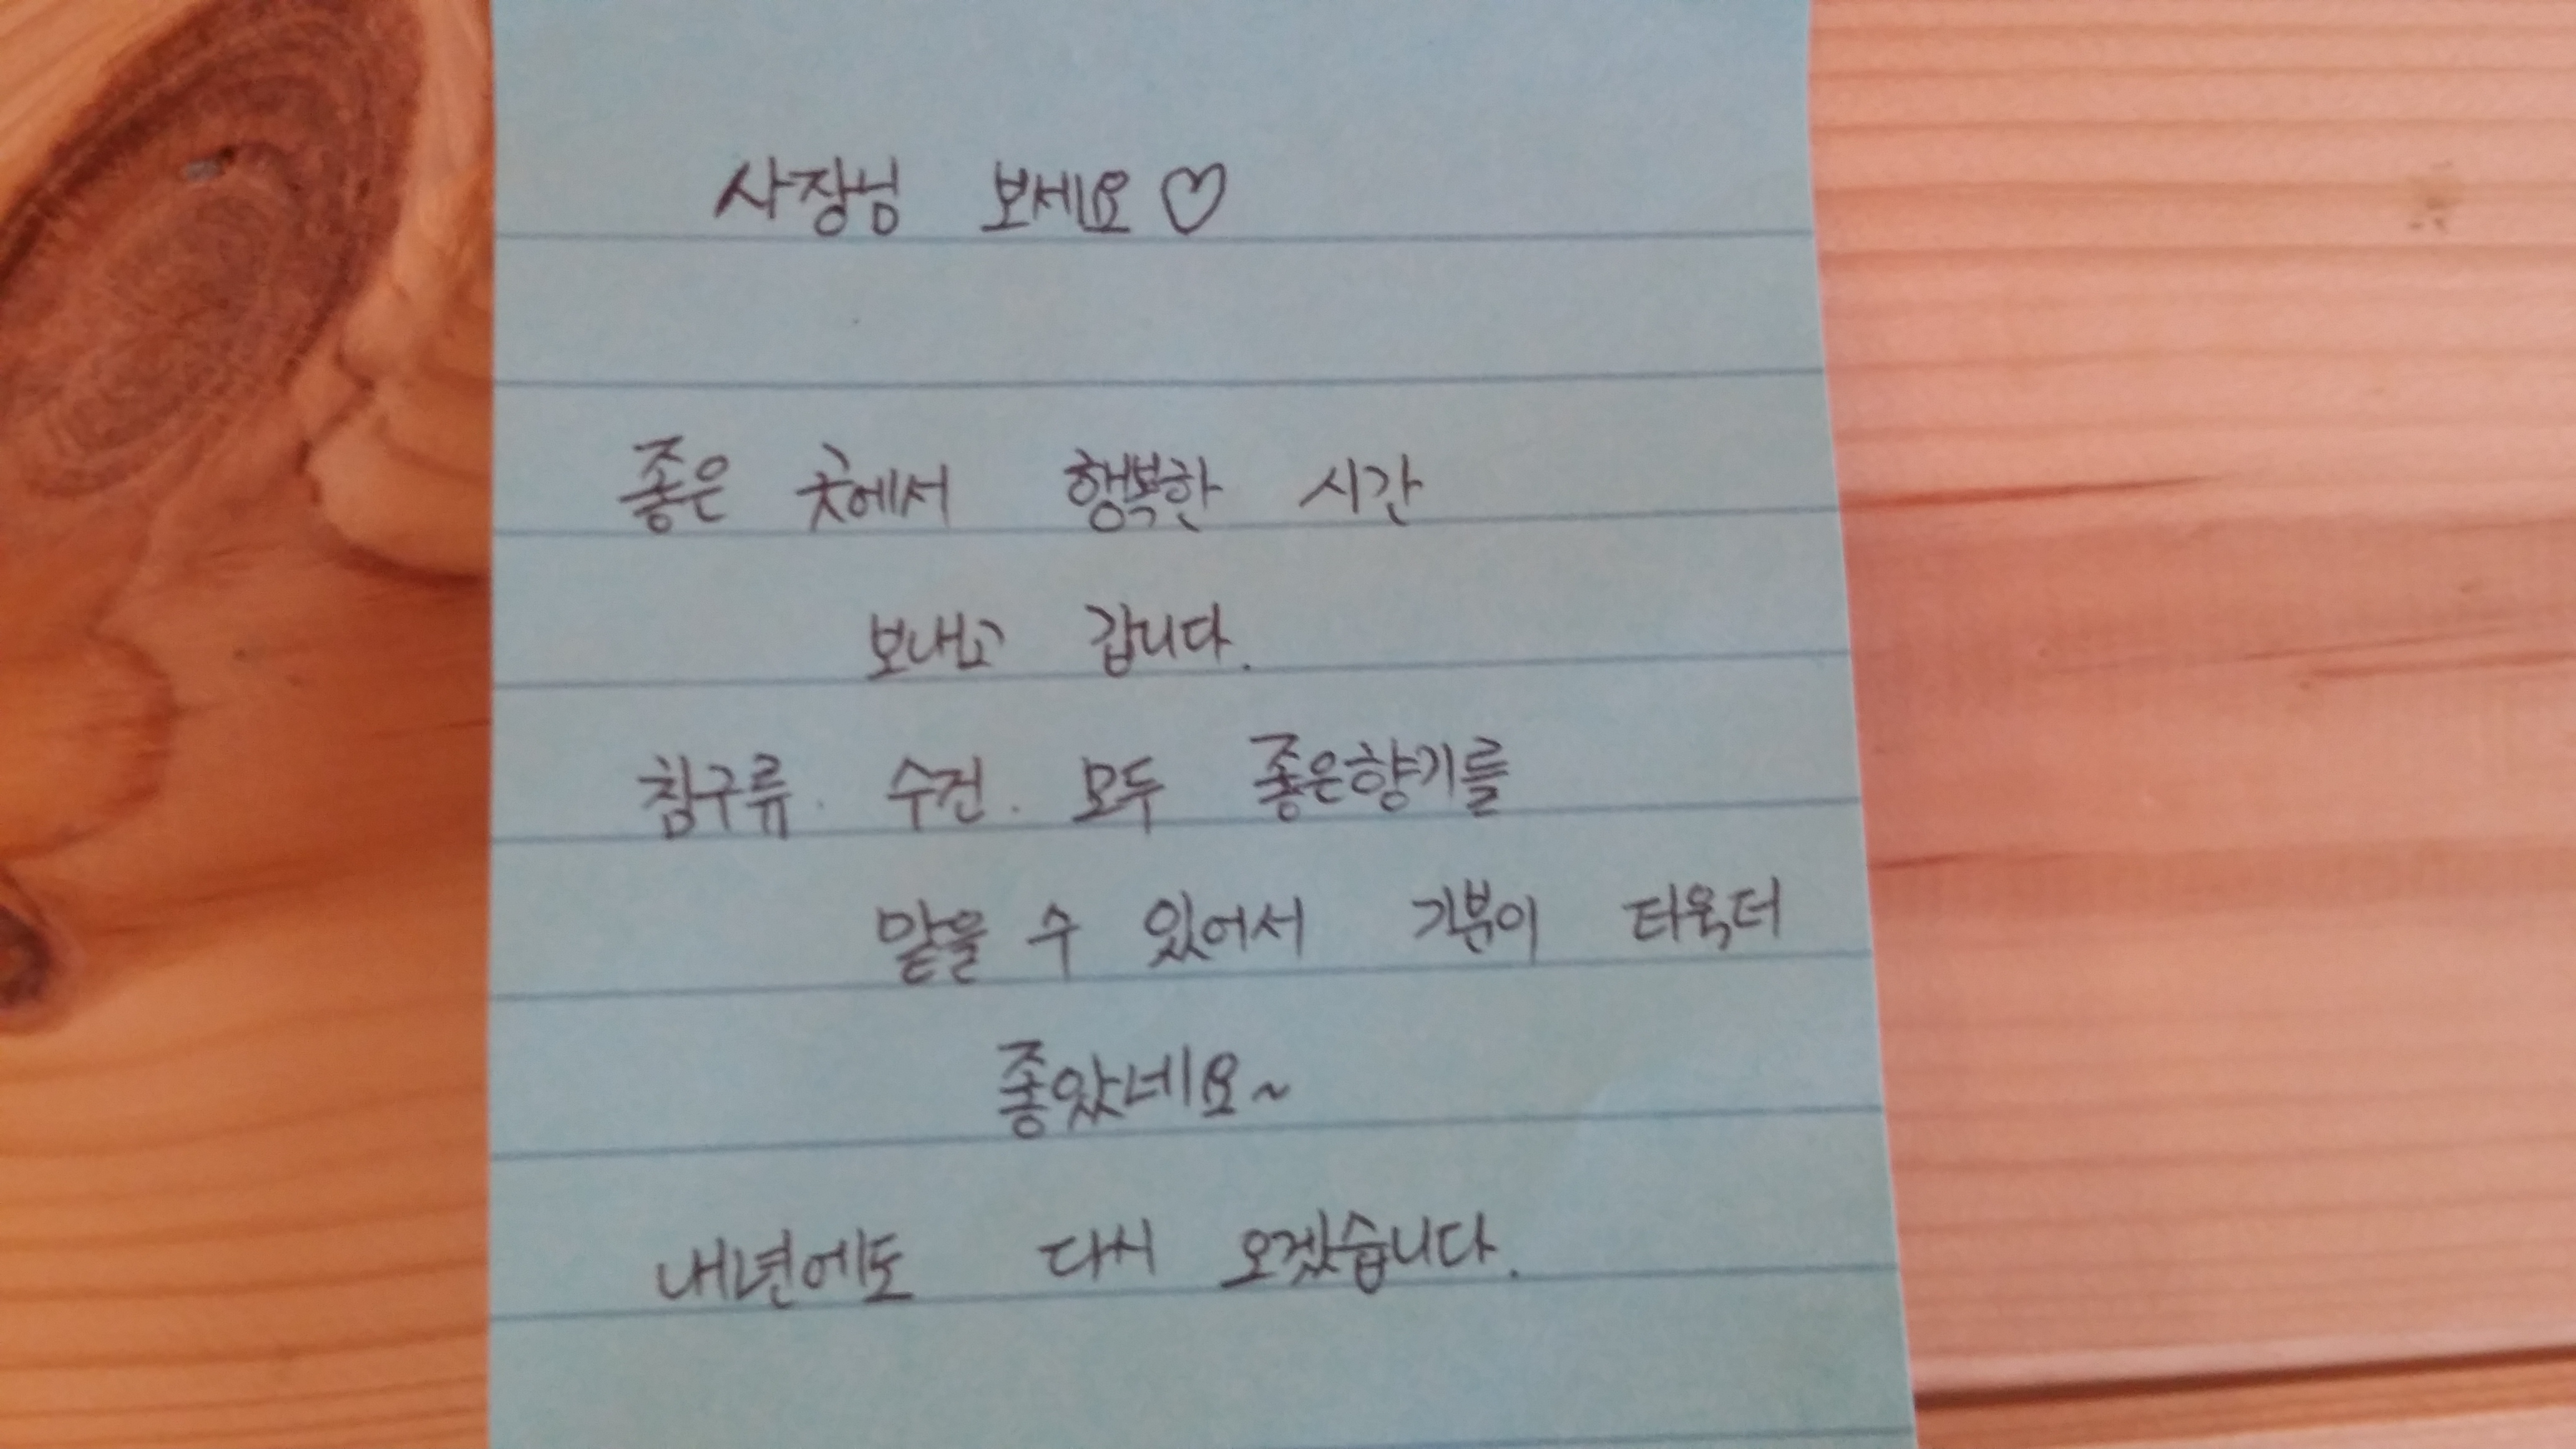 사장님 보세요♡
좋은 곳에서 행복한 시간
보내고 갑니다.
침구류. 수건. 모두 좋은향기를
맡을 수 있어서 기분이 더욱더
좋았네요~
내년에도 다시 오겠습니다.